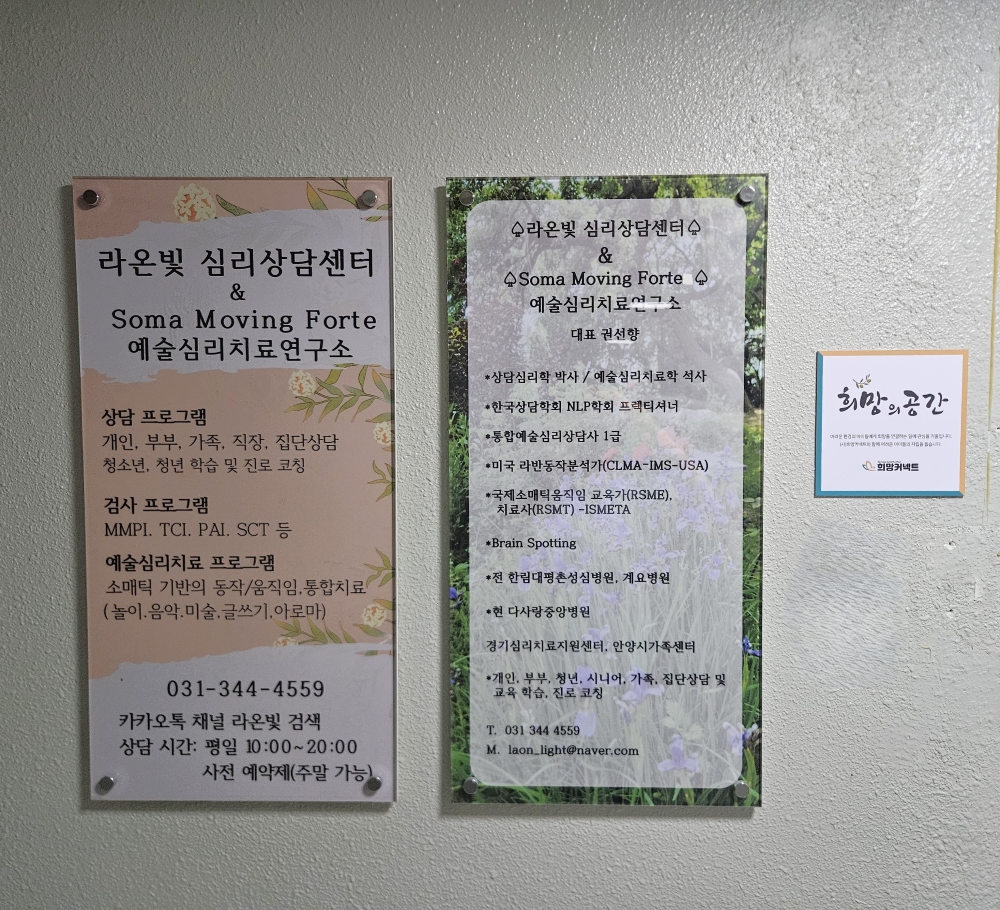 라온빛 심리상담센터
&
Soma Moving Forte
예술심리치료연구소
상담 프로그램
개인, 부부, 가족, 직장, 집단상담
청소년, 청년 학습 및 진로 코칭
검사 프로그램
MMPI. TCI. PAI. SCT 등
예술심리치료 프로그램
소매틱 기반의 동작/움직임.통합치료
(놀이.음악.미술.글쓰기.아로마)
031-344-4559
카카오톡 채널 라온빛 검색
상담 시간: 평일 10:00~20:00
사전 예약제(주말 가능)
♤라온빛 심리상담센터♤
&
♤Soma Moving Forte ♤
예술심리치료연구소
대표 권선향
*상담심리학 박사 / 예술심리치료학 석사
*한국상담학회 NLP학회 프랙티셔너
*통합예술심리상담사 1급
*미국 라반동작분석가(CLMA-IMS-USA)
*국제소매틱움직임 교육가(RSME),
치료사(RSMT) -ISMETA
*Brain Spotting
*전 한림대평촌성심병원, 계요병원
*현 다사랑중앙병원
경기심리치료지원센터, 안양시가족센터
*개인, 부부, 청년, 시니어, 가족, 집단상담 및
교육 학습, 진로 코칭
T. 031 344 4559
M. laon_light@naver.com
희망의 공간
희망커넥트